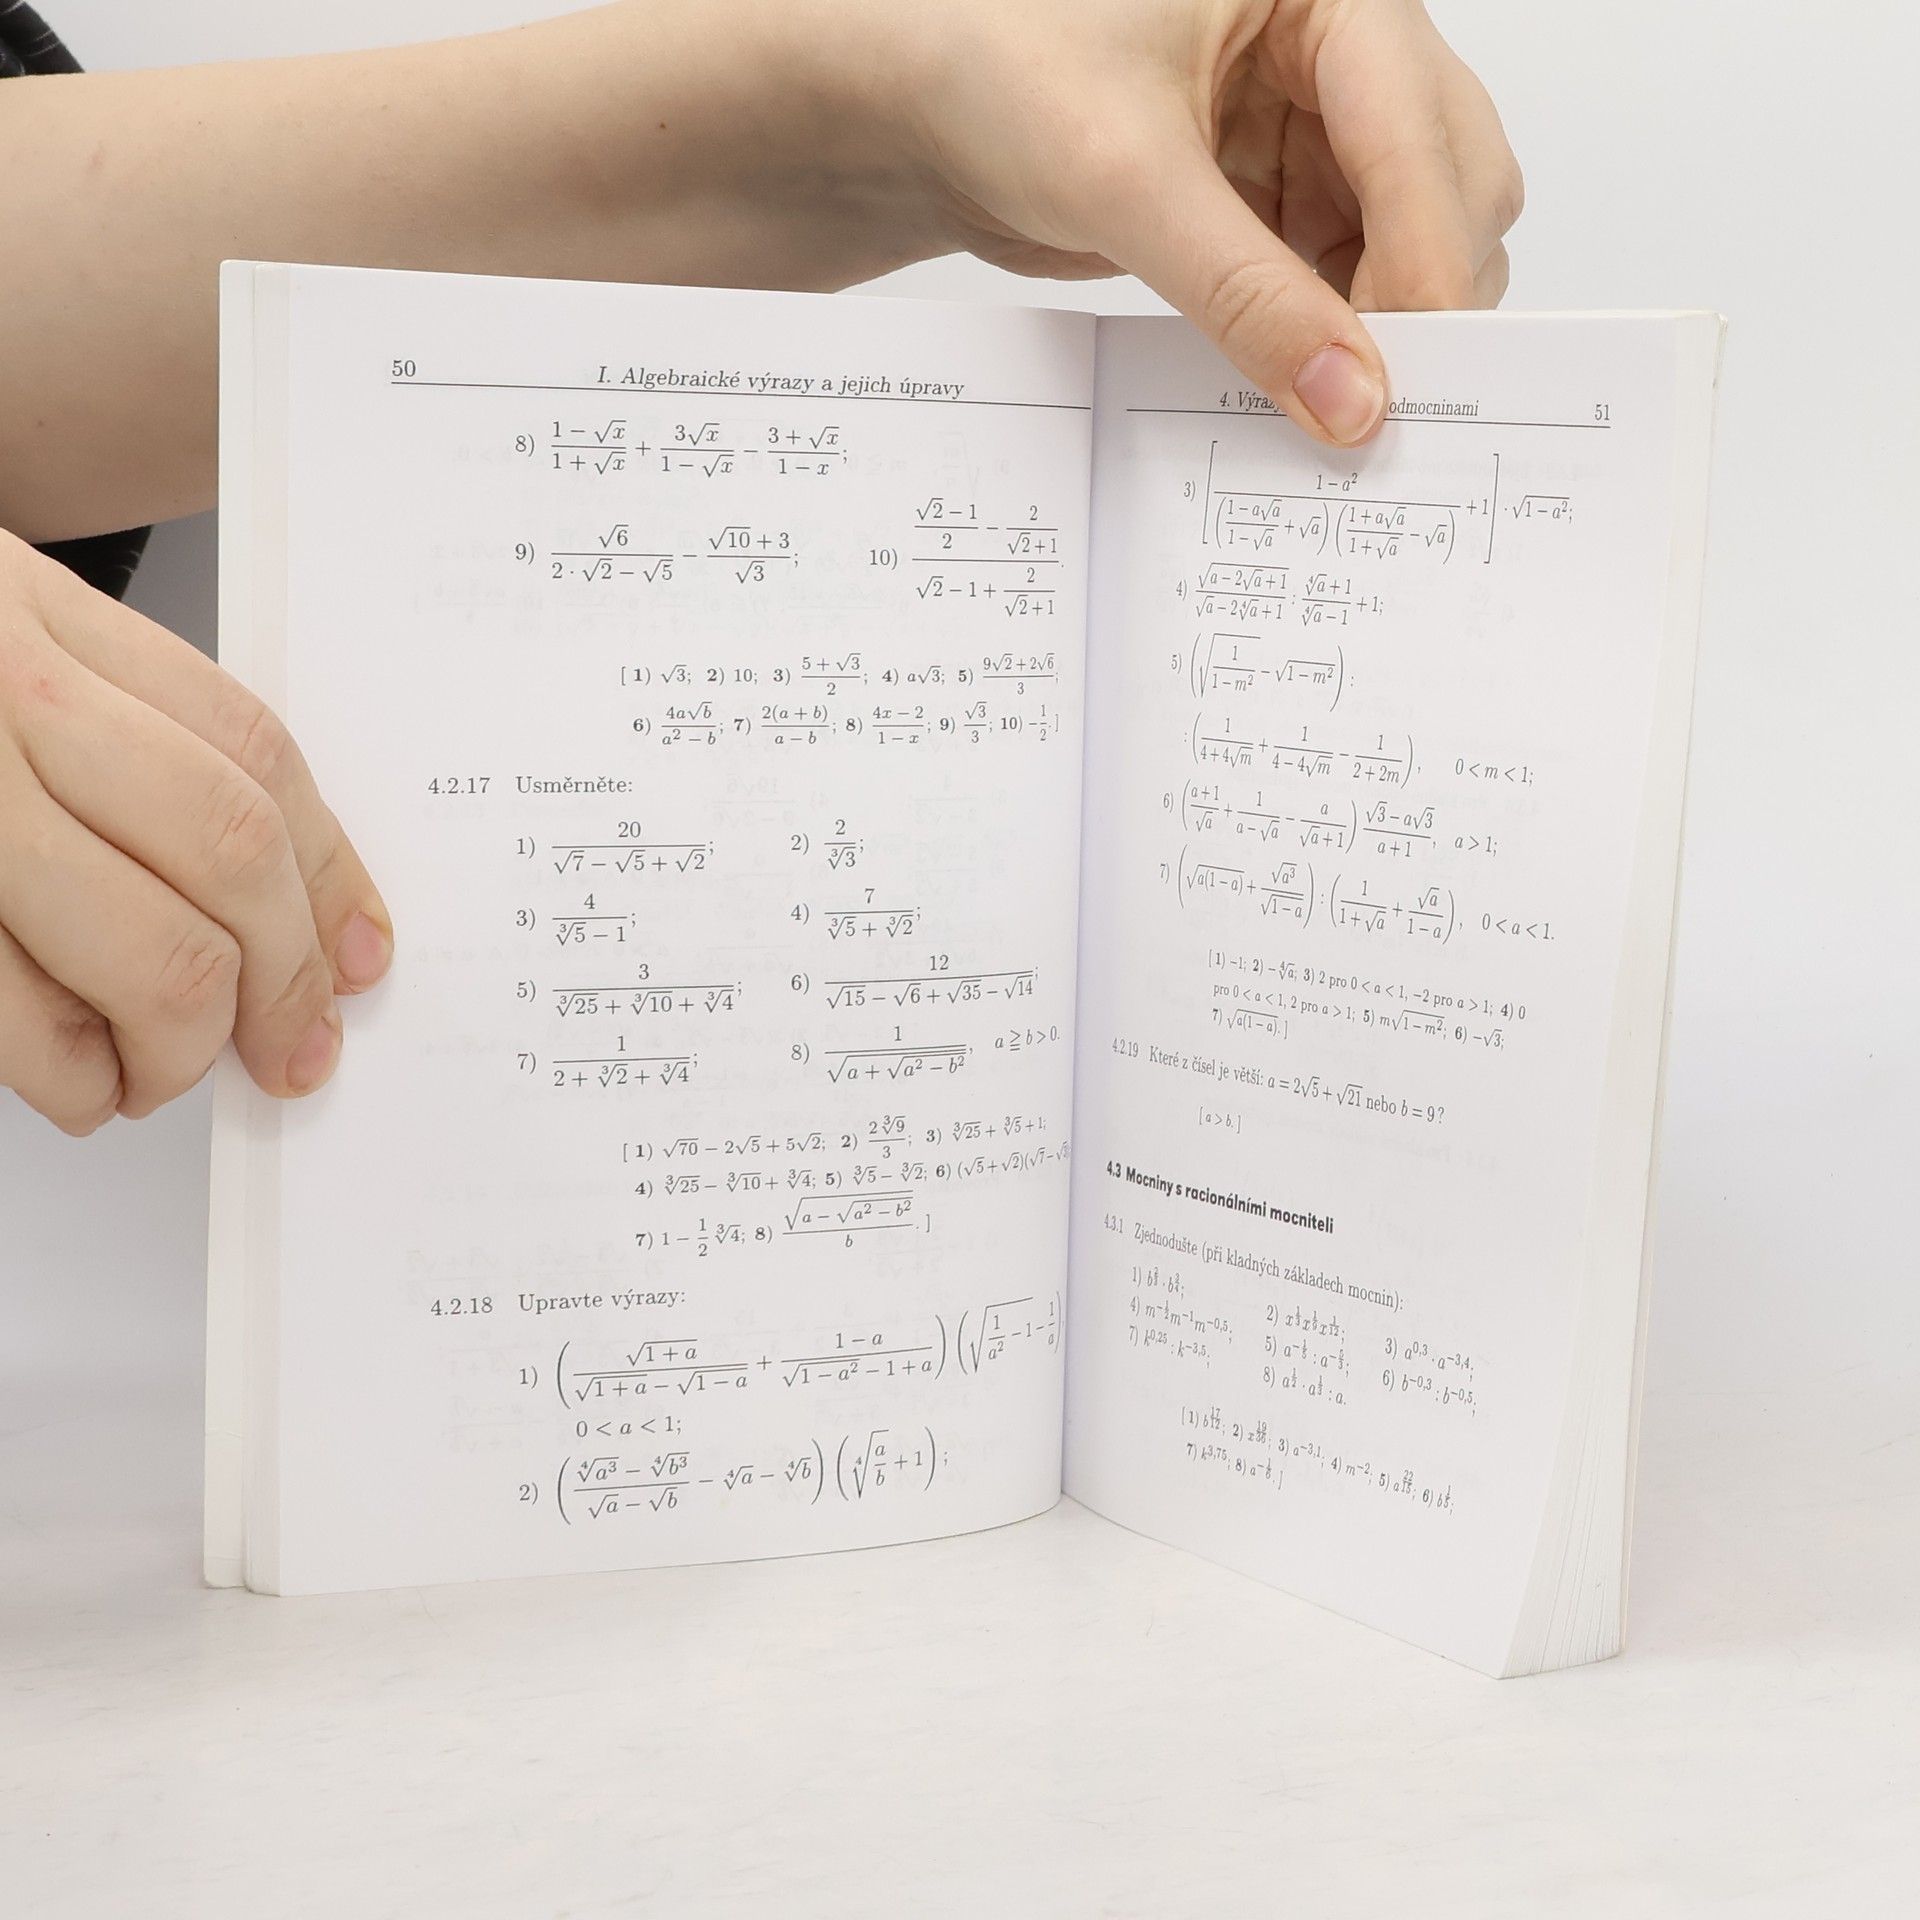 50 I. Algebraické výrazy a jejich úpravy
8) (1 − √x)/(1 + √x) + (3√x)/(1 − √x) − (3 + √x)/(1 − x);
9) √6/(2 · √2 − √5) − (√10 + 3)/√3; 10) ((√2 − 1)/2 − 2/(√2 + 1))/(√2 − 1 + 2/(√2 + 1)).
[ 1) √3; 2) 10; 3) (5 + √3)/2; 4) a√3; 5) (9√2 + 2√6)/3;
6) 4a√b/(a² − b); 7) 2(a + b)/(a − b); 8) (4x − 2)/(1 − x); 9) √3/3; 10) −1/2. ]
4.2.17 Usměrněte:
1) 20/(√7 − √5 + √2); 2) 2/∛3;
3) 4/(∛5 − 1); 4) 7/(∛5 + ∛2);
5) 3/(∛25 + ∛10 + ∛4); 6) 12/(√15 − √6 + √35 − √14);
7) 1/(2 + ∛2 + ∛4); 8) 1/√(a + √(a² − b²)), a ≧ b > 0.
[ 1) √70 − 2√5 + 5√2; 2) 2∛9/3; 3) ∛25 + ∛5 + 1;
4) ∛25 − ∛10 + ∛4; 5) ∛5 − ∛2; 6) (√5 + √2)(√7 −
7) 1 − 1/2 ∛4; 8) √(a − √(a² − b²))/b. ]
4.2.18 Upravte výrazy:
1) (√(1 + a)/(√(1 + a) − √(1 − a)) + (1 − a)/(√(1 − a²) − 1 + a)) (√(1/a² − 1) − 1/a)
0 < a < 1;
2) ((∜a³ − ∜b³)/(√a − √b) − ∜a − ∜b) (∜(a/b) + 1);
4. odmocninami 51
3) [(1 − a²)/(((1 − a√a)/(1 − √a) + √a)((1 + a√a)/(1 + √a) − √a)) + 1] · √(1 − a²);
4) √(a − 2√a + 1)/√(√a − 2∜a + 1) : (∜a + 1)/(∜a − 1) + 1;
5) (√(1/(1 − m²)) − √(1 − m²)) :
: (1/(4 + 4√m) + 1/(4 − 4√m) − 1/(2 + 2m)), 0 < m < 1;
6) ((a + 1)/√a + 1/(a − √a) − a/(√a + 1)) (√3 − a√3)/(a + 1), a > 1;
7) (√(a(1 − a)) + √a³/√(1 − a)) : (1/(1 + √a) + √a/(1 − a)), 0 < a < 1.
[ 1) −1; 2) −∜a; 3) 2 pro 0 < a < 1, −2 pro a > 1; 4) 0
pro 0 < a < 1, 2 pro a > 1; 5) m√(1 − m²); 6) −√3;
7) √(a(1 − a)). ]
4.2.19 Které z čísel je větší: a = 2√5 + √21 nebo b = 9?
[ a > b. ]
4.3 Mocniny s racionálními mocniteli
4.3.1 Zjednodušte (při kladných základech mocnin):
1) b^(2/3) · b^(3/4); 2) x^(1/3) x^(1/9) x^(1/12); 3) a^0,3 · a^−3,4;
4) m^(−1/2) m^−1 m^−0,5; 6) b^−0,3 : b^−0,5;
7) k^0,25 : k^−3,5; 8) a^(1/2) · a^(1/3) : a.
[ 1) b^(17/12); 2) x^(19/36); 3) a^−3,1; 4) m^−2; 5) a^(22/15); 6) b^(1/5);
7) k^3,75; 8) a^(−1/6). ]